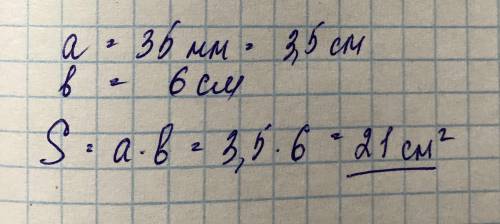 a = 35 мм = 3,5 см
в = 6 см
S = a · в = 3,5 · 6 = 21 см²